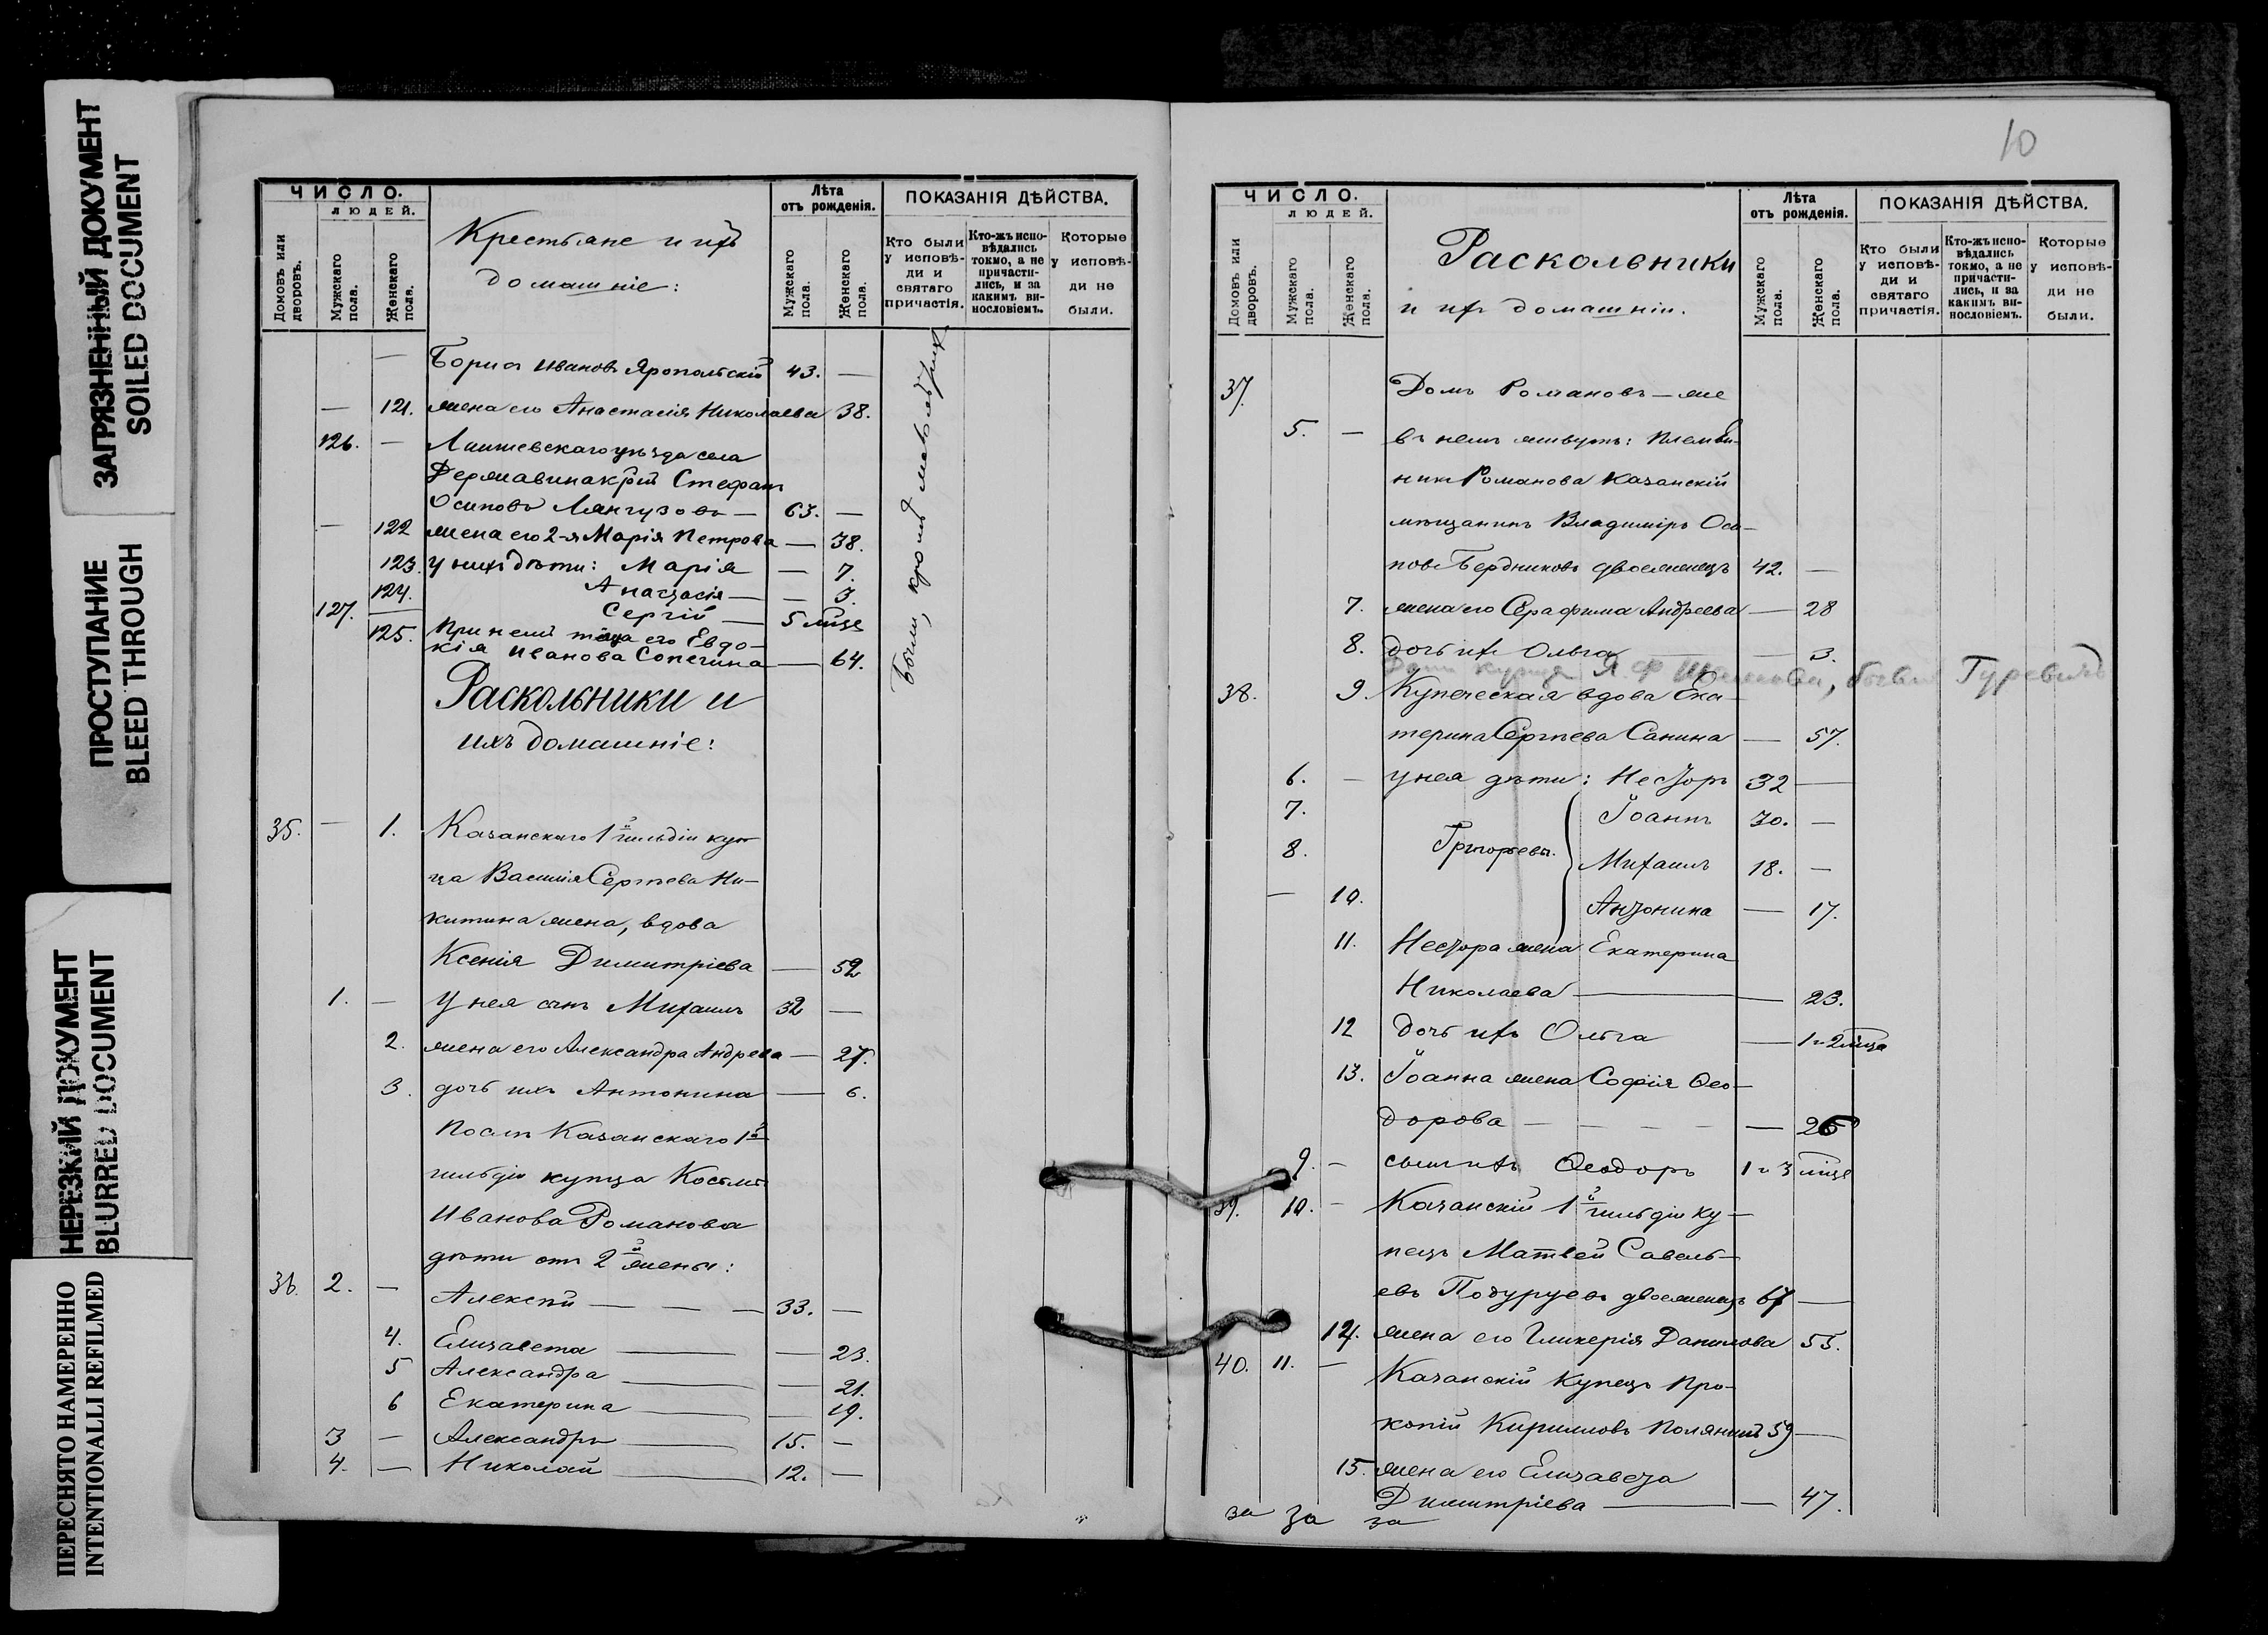 ЗАГРЯЗНЕННЫЙ ДОКУМЕНТ
SOILED DOCUMENT
ПРОСТУПАНИЕ
BLEED THROUGH
НЕРЕЗКИЙ ДОКУМЕНТ
BLURRED DOCUMENT
ПЕРЕСНЯТО НАМЕРЕННО
INTENTIONALLI REFILMED
ЧИСЛО.
ЛЮДЕЙ.
Домовъ или дворовъ.
Мужскаго пола.
Женскаго пола.
Крестьяне и ихъ
домашніе:
Лѣта
отъ рожденія.
Мужскаго пола.
Женскаго пола.
ПОКАЗАНІЯ ДѢЙСТВА.
Кто были у исповѣди и святаго причастія.
Кто-жъ исповѣдались токмо, а не причастились, и за какимъ винословіемъ.
Которые у исповѣди не были.
— Борисъ Ивановъ Яропольскій 43. —
— 121. жена его Анастасія Николаева 38.
126. — Лаишевскаго уѣзда села
Державина кр̃нъ Стефанъ
Осиповъ Лянгузовъ — 63. —
— 122 жена его 2-я Марія Петрова — 38.
123. у нихъ дѣти: Марія — 7.
124. Анастасія — — 3.
127. Сергій — 5 мце
125. При немъ теща его Евдо-
кія Иванова Сопегина — 64.
Были, кромѣ
Раскольники и
ихъ домашніе:
35. — 1. Казанскаго 1й гильдіи куп
ца Василія Сергѣева Ни-
китина жена, вдова
Ксенія Димитріева — 52
1. — У нея сынъ Михаилъ 32 —
2. жена его Александра Андреева — 27.
3. дочь ихъ Антонина — 6.
Послѣ Казанскаго 1й
гильдіи купца Косьмы
Иванова Романова
дѣти отъ 2й жены:
36. 2. — Алексѣй — — — 33. —
4. Елизавета — — 23.
5 Александра — — 21.
6 Екатерина — — 19.
3 — Александръ — 15. —
4. — Николай — 12. —
10
ЧИСЛО.
ЛЮДЕЙ.
Домовъ или дворовъ.
Мужскаго пола.
Женскаго пола.
Раскольники
и ихъ домашніи.
Лѣта
отъ рожденія.
Мужскаго пола.
Женскаго пола.
ПОКАЗАНІЯ ДѢЙСТВА.
Кто были у исповѣди и святаго причастія.
Кто-жъ исповѣдались токмо, а не причастились, и за какимъ винословіемъ.
Которые у исповѣди не были.
37. Домъ Романовъ — же
5. — въ немъ живутъ: племян-
никъ Романова Казанскій
мѣщанинъ Владиміръ Оси-
повъ Бердниковъ двоеженецъ 42. —
7. жена его Серафима Андреева — 28
8. дочь ихъ Ольга — 3.
Домъ купца Я. Ф. бывш Гуревичъ
38. 9. Купеческая вдова Ека-
терина Сергѣева Санина — 57.
6. — у нея дѣти: Несторъ 32 —
7. Іоаннъ 30. —
8. Григорьевы. Михаилъ 18. —
— 10. Антонина — 17.
11. Нестора жена Екатерина
Николаева — — 23.
12 дочь ихъ Ольга — 1 и 2 мца
13. Іоанна жена Софія Ѳео-
дорова — — — — 26
9. — сынъ ихъ Ѳеодоръ 1 и 3 мце
39. 10. — Казанскій 1й гильдіи ку-
пецъ Матвей Савель-
евъ Подуруевъ двоеженецъ 67 —
14. жена его Гликерія Данилова 55.
40. 11. — Казанскій купецъ Про-
копій Кирилловъ Полянинъ 59 —
15. жена его Елизавета
Димитріева — — 47.
за за за